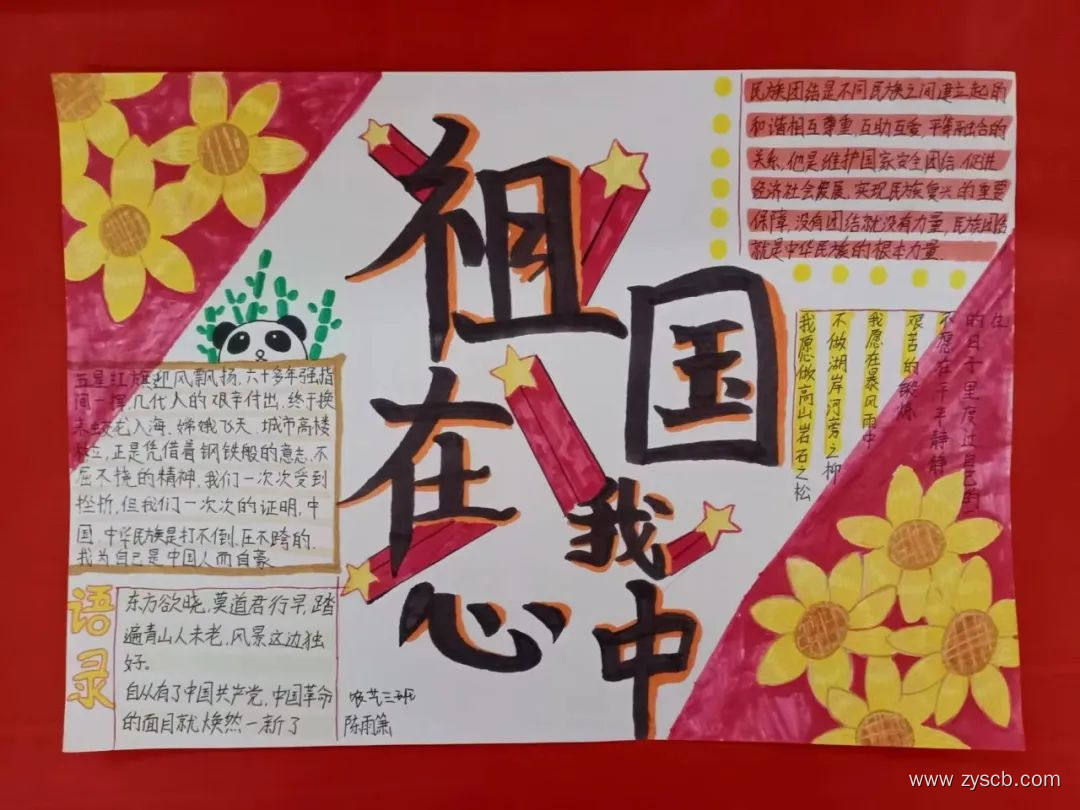 祖国在我心中
民族团结是不同民族之间建立起的
和谐相互尊重,互助互爱,平等融合的
关系,他是维护国家安全团结,促进
经济社会发展,实现民族复兴的重要
保障,没有团结就没有力量,民族团结
就是中华民族的根本力量.
我愿做高山岩石之松
不做湖岸河旁之柳
我愿在暴风雨中
艰苦的锻炼
不愿在平平静静
的日子里度过自己的
五星红旗迎风飘扬,六十多年强指
间一挥,几代人的艰辛付出,终于换
来蛟龙入海、嫦娥飞天、城市高楼
林立,正是凭借着钢铁般的意志,不
屈不挠的精神,我们一次次受到
挫折,但我们一次次的证明,中
国,中华民族是打不倒,压不跨的.
我为自己是中国人而自豪
语录
东方欲晓,莫道君行早,踏
遍青山人未老,风景这边独
好。
自从有了中国共产党,中国革命
的面目就焕然一新了
农艺三班
陈雨箫
www.zyscb.com